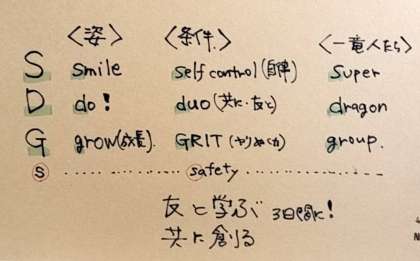 〈姿〉 〈条件〉 〈一竜人たち〉
S smile self control(自律) super
D do! duo(共に・友と) dragon
G grow(成長) GRIT(やりぬく力) group.
Ⓢ ・・・・・・・・・ safety ・・・・・・・・・
友と学ぶ 3日間に!
共に創る